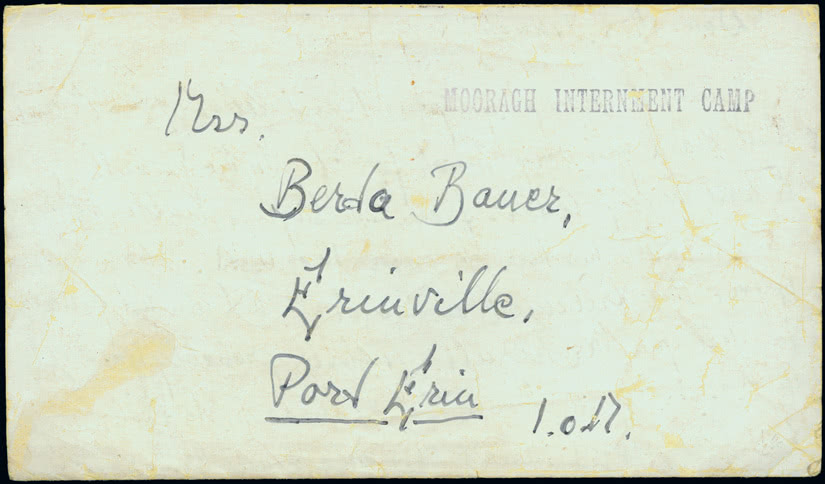 MOORAGH INTERNMENT CAMP
Mrs.
Berta Bauer,
Erinville,
Port Erin
I.o.M.